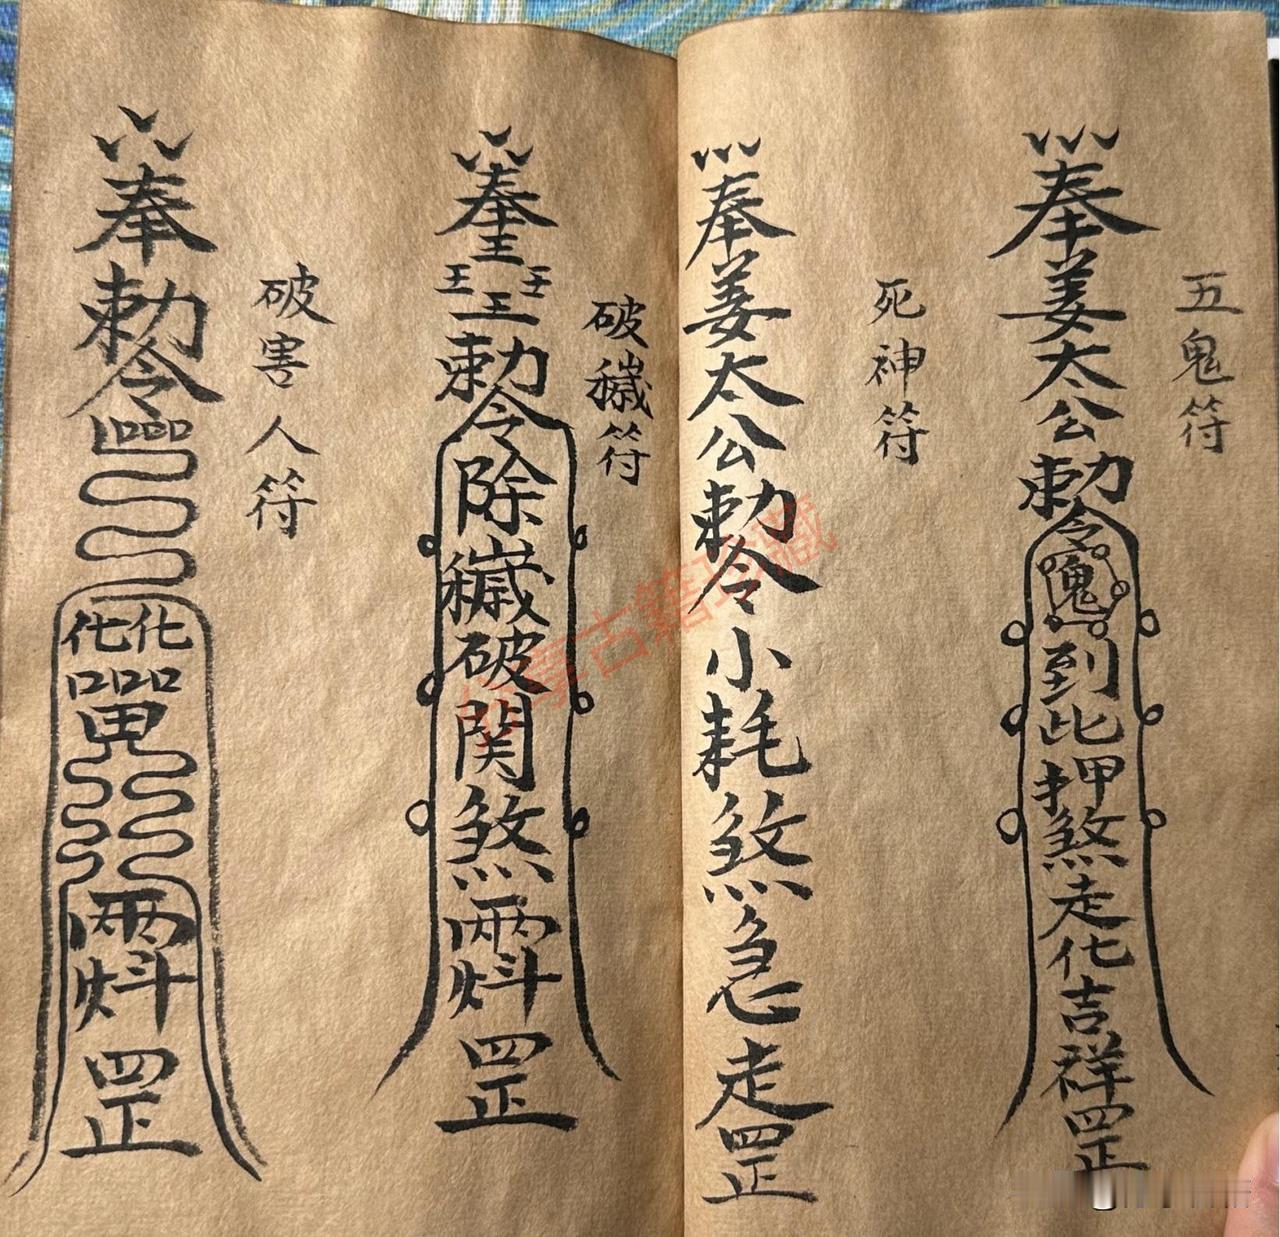 五鬼符
奉姜太公勅令鬼到此押煞走化吉祥罡
死神符
奉姜太公勅令小耗煞急走罡
破穢符
奉王王王王勅令除穢破関煞
罡
破害人符
奉勅令
化化
罡
古籍珍藏